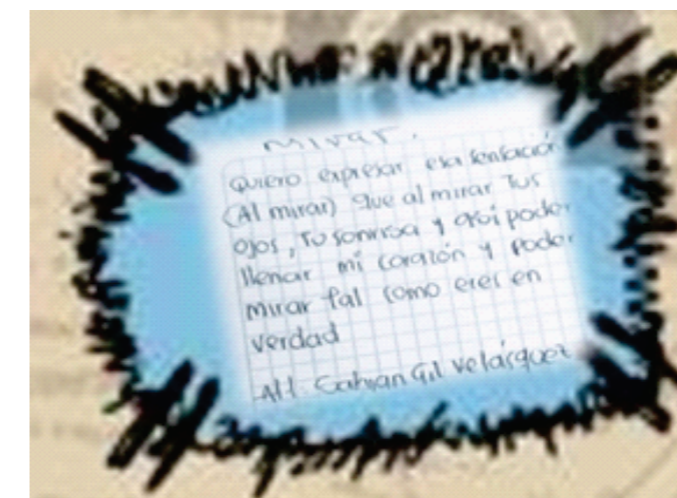 Mirar.
Quiero expresar esa sensación
(Al mirar) que al mirar Tus
ojos, Tu sonrisa y asi poder
llenar mi corazón y poder
mirar tal como eres en
verdad
Att. Gil Velásquez